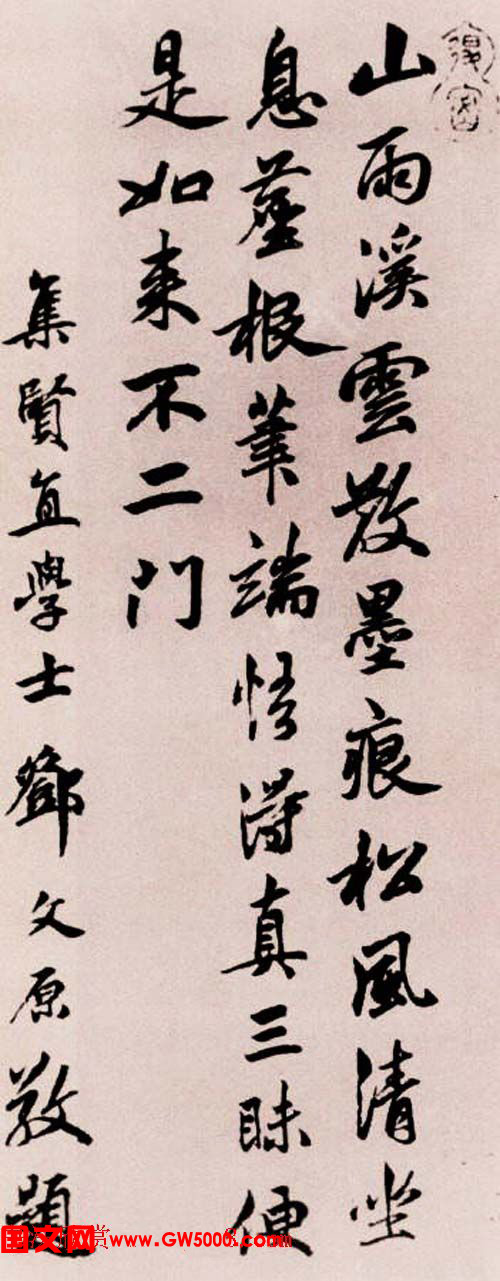 山雨溪雲散墨痕松風清坐
息塵根筆端悟得真三昧便
是如來不二門
集賢直學士鄧文原敬題
国文网 www.GW5000.com